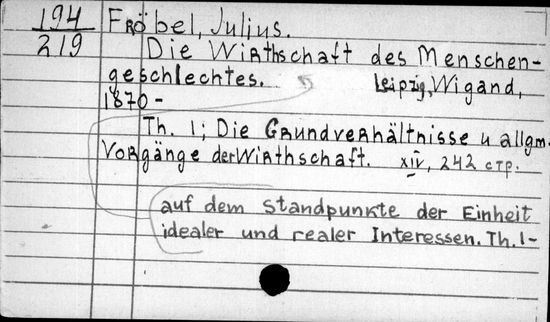 194
219
Fröbel, Julius.
Die Wirthschaft des Menschen-
geschlechtes. Leipzig, Wigand,
1870-
Th. 1; Die Grundverhältnisse u allgm.
Vorgänge der Wirthschaft. XIV, 242 стр.
auf dem Standpunkte der Einheit
idealer und realer Interessen. Th. 1-